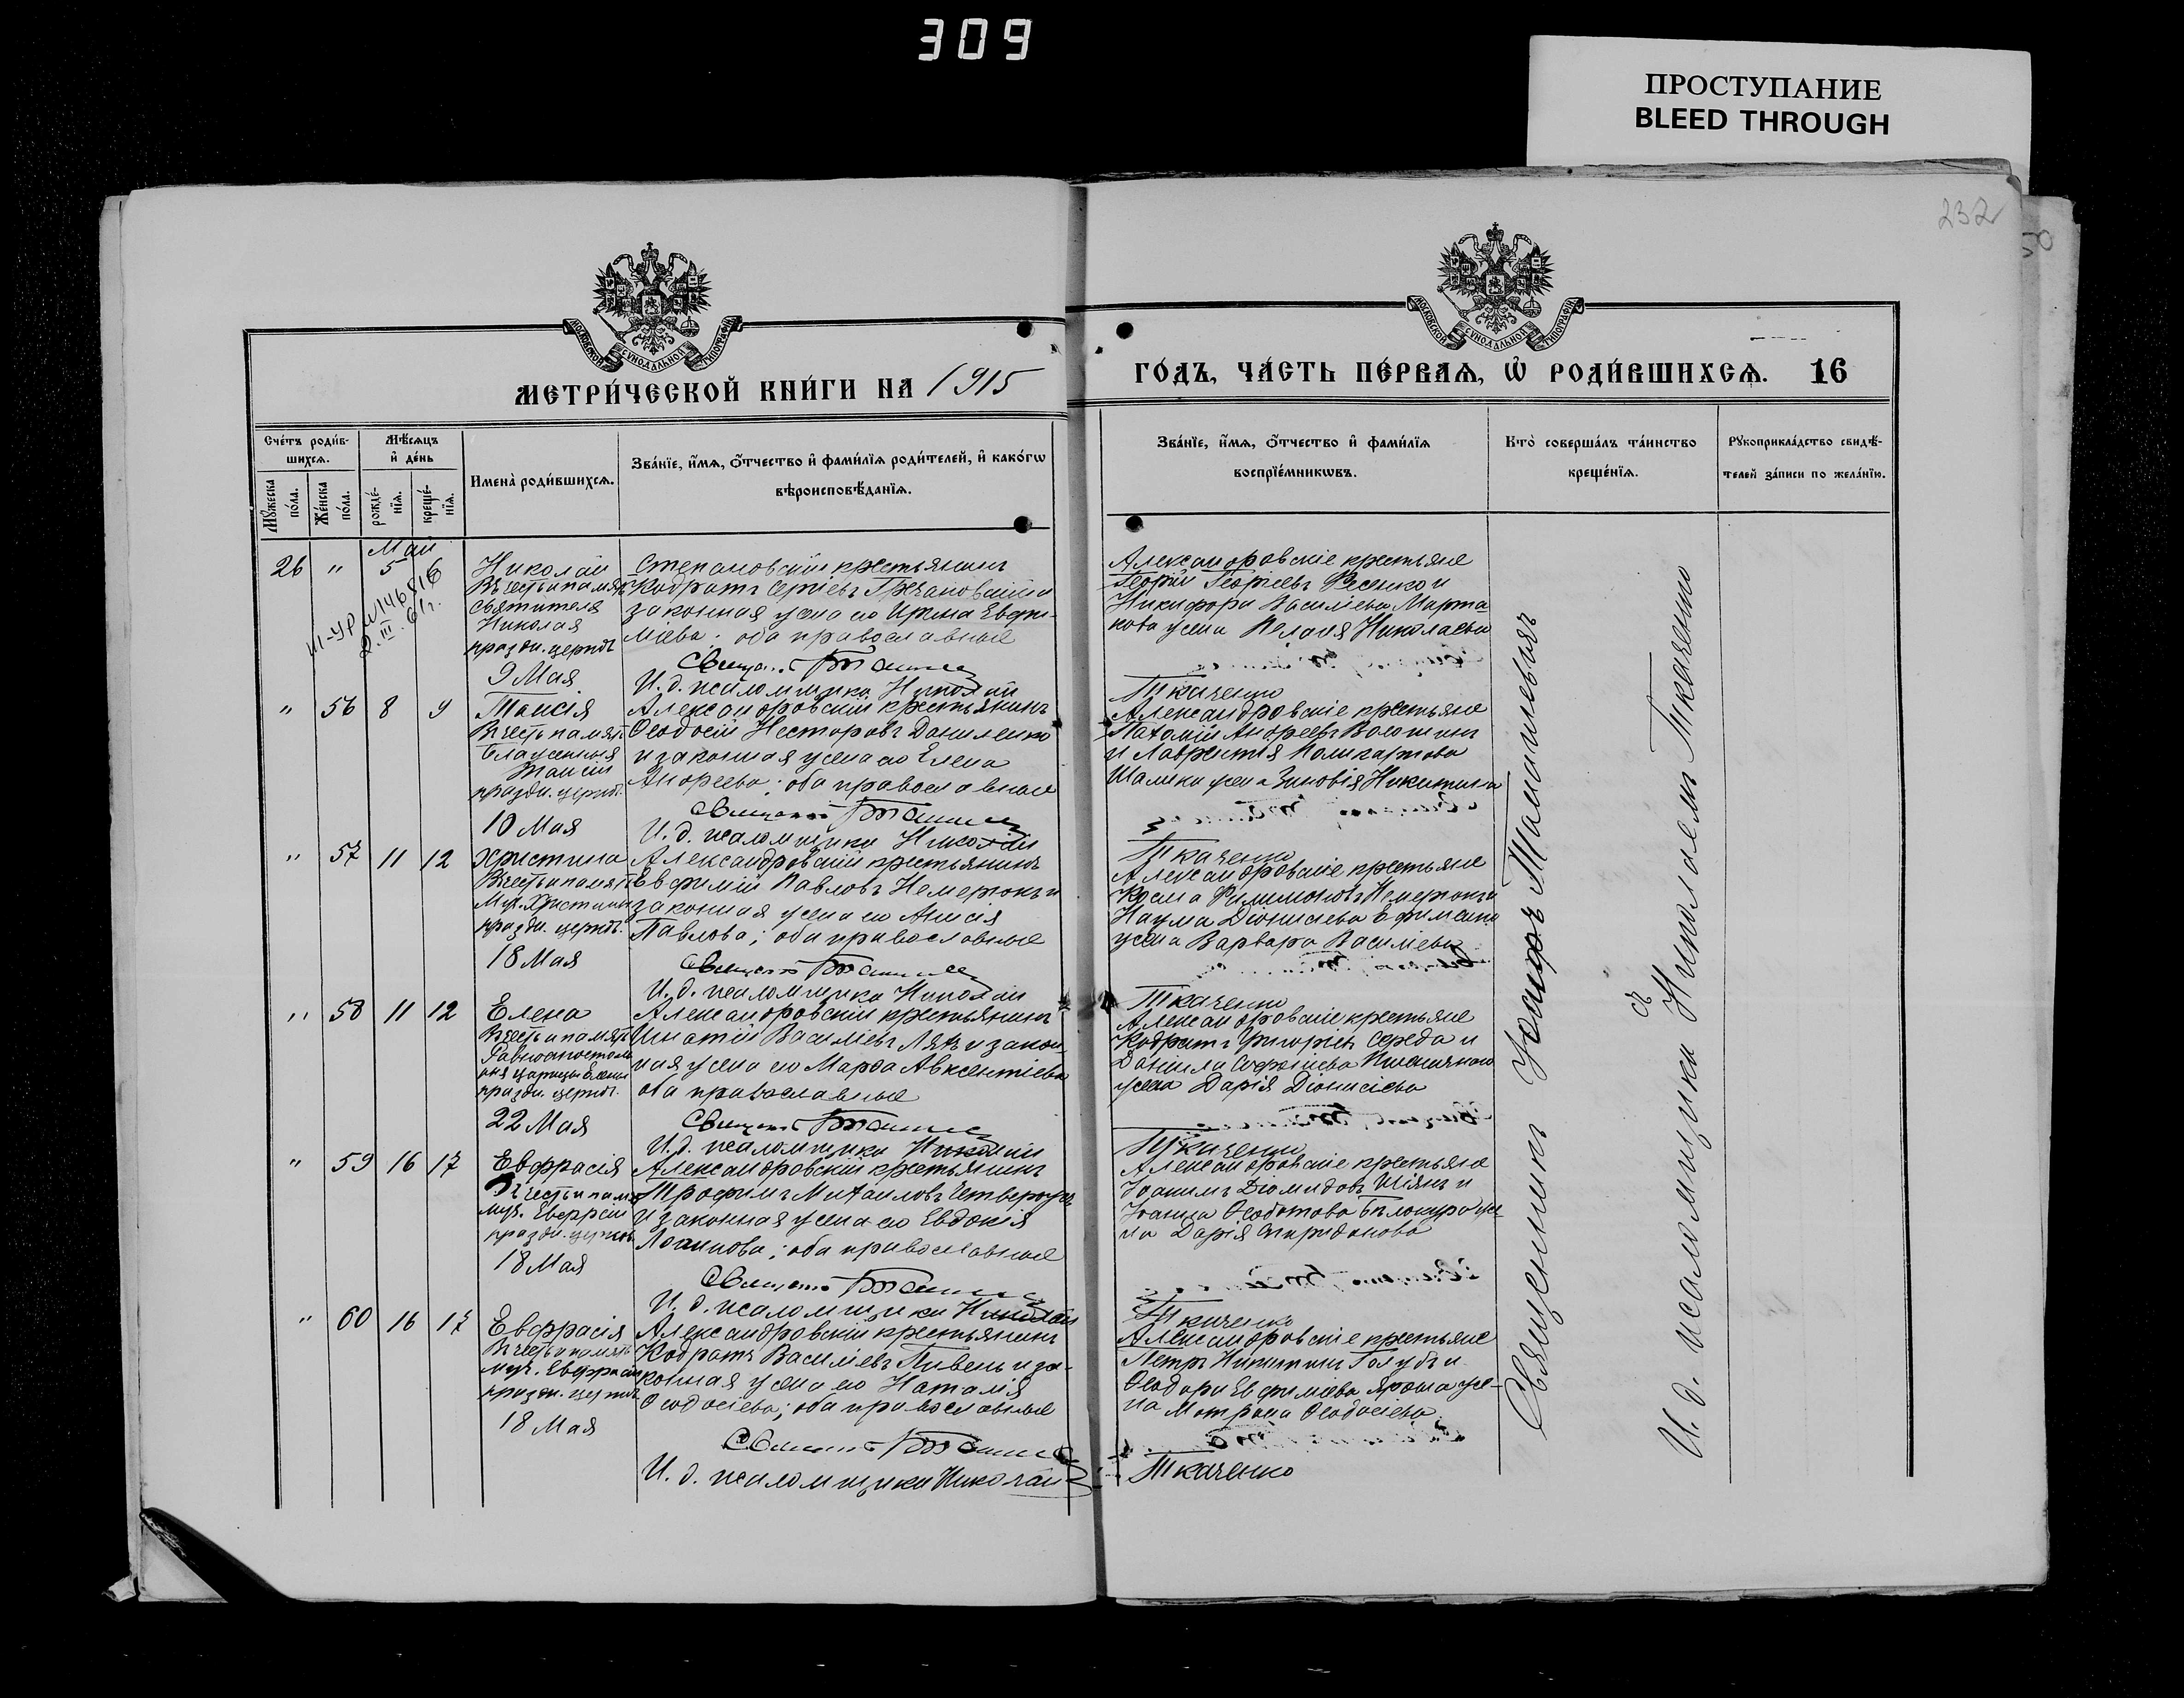 309
ПРОСТУПАНИЕ
BLEED THROUGH
232
50
МОСКОВСКОЙ СѴНОДАЛЬНОЙ ТИПОГРАФІИ
МОСКОВСКОЙ СѴНОДАЛЬНОЙ ТИПОГРАФІИ
МЕТРИ́ЧЕСКОЙ КНИ́ГИ НА 1915
ГО́ДЪ, ЧА́СТЬ ПЕ́РВАЯ, Ѡ҆ РОДИ́ВШИХСЯ. 16
Сче́тъ роди́в-
шихся.
Мѣ́сяцъ
и҆ де́нь
Мꙋ́жеска
по́ла.
Же́нска
по́ла.
рожде́-
нїя.
креще́-
нїя.
И҆мена̀ роди́вшихся.
Зва́нїе, и҆́мя, ѻ҆́тчество и҆ фами́лїя роди́телей, и҆ како́гѡ
вѣроисповѣ́данїя.
Зва́нїе, и҆́мя, ѻ҆́тчество и҆ фами́лїя
воспрїе́мникѡвъ.
Кто̀ соверша́лъ та́инство
креще́нїя.
Рꙋкоприкла́дство свидѣ́-
телей за́писи по жела́нїю.
Май
26 " 5 6
Николай
Въ честь и память
святителя
Николая
праздн. церков.
9 Мая
Степановскій крестьянинъ
Кодратъ Сергіевъ Гречановскій и
законная жена его Ирина Евфи-
міева; оба православные
Священ.
И. д. псаломщика Николай
Александровскіе крестьяне
Георгій Георгіевъ и
Никифора Василіева
жена Пелагія Николаева
Ткаченко
" 56 8 9
Таисія
Въ честь и память
блаженныя
Таисіи
праздн. церков.
10 Мая
Александровскій крестьянинъ
Ѳеодосій Несторовъ Даниленко
и законная жена его Елена
Андреева; оба православные
Священ.
И. д. псаломщика Николай
Александровскіе крестьяне
Пахомій Андреевъ Волошинъ
и Лаврентія Поликарпова
жена Зиновія Никитина
Ткаченко
" 57 11 12
Христина
Въ честь и память
Муч. Христины
праздн. церков.
18 Мая
Александровскій крестьянинъ
Евфимій Павловъ и
законная жена его Анисія
Павлова; оба православные
Священ.
И. д. псаломщика Николай
Александровскіе крестьяне
Косма Филимоновъ
Наума Діонисіева Ефименко
жена Варвара Василіева
Ткаченко
" 58 11 12
Елена
Въ честь и память
Равноапостоль
ныя царицы Елены
праздн. церков.
22 Мая
Александровскій крестьянинъ
Игнатій Василіевъ Ляхъ и закон-
ная жена его Марѳа Авксентіева
оба православные
Священ.
И. д. псаломщика Николай
Александровскіе крестьяне
Кодратъ Григоріевъ Середа и
Даніила Софоніева
жена Дарія Діонисіева
Ткаченко
" 59 16 17
Евфрасія
Въ честь и память
муч. Евфрасіи
праздн. церков.
18 Мая
Александровскій крестьянинъ
Трофимъ Михаиловъ
и законная жена его Евдокія
Логинова; оба православные
Священ.
И. д. псаломщика Николай
Александровскіе крестьяне
Іоакимъ Діомидовъ Шіянъ и
Іоанна Ѳеодотова Бѣлокура же-
на Дарія Спиридонова
Ткаченко
" 60 16 17
Евфрасія
Въ честь и память
муч. Евфрасіи
праздн. церков.
18 Мая
Александровскій крестьянинъ
Кодратъ Василіевъ Пивень и за-
конная жена его Наталія
Ѳеодосіева; оба православные
Священ.
И. д. псаломщика Николай
Александровскіе крестьяне
Петръ Никитинъ Голубъ и
Ѳеодора Евфиміева Яроша же-
на Матрона Ѳеодосіева
Ткаченко
Священникъ Іоаннъ
съ
И. д. псаломщика Николаемъ Ткаченко